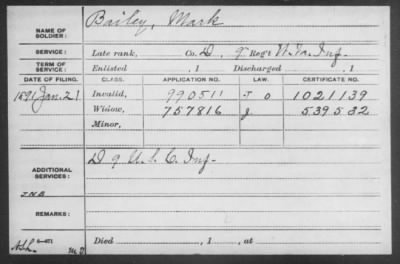 NAME OF SOLDIER: Bailey, Mark
SERVICE: Late rank, Co. D, 9 Reg't Inf.
TERM OF SERVICE: Enlisted , 1 Discharged , 1
DATE OF FILING. CLASS. APPLICATION NO. LAW. CERTIFICATE NO.
1891 Jan. 21 Invalid, 990511 J O 1021139
Widow, 757816 J. 539532
Minor,
ADDITIONAL SERVICES: D 9 U.S.C. Inf.
JNB
REMARKS:
Died , 1 , at